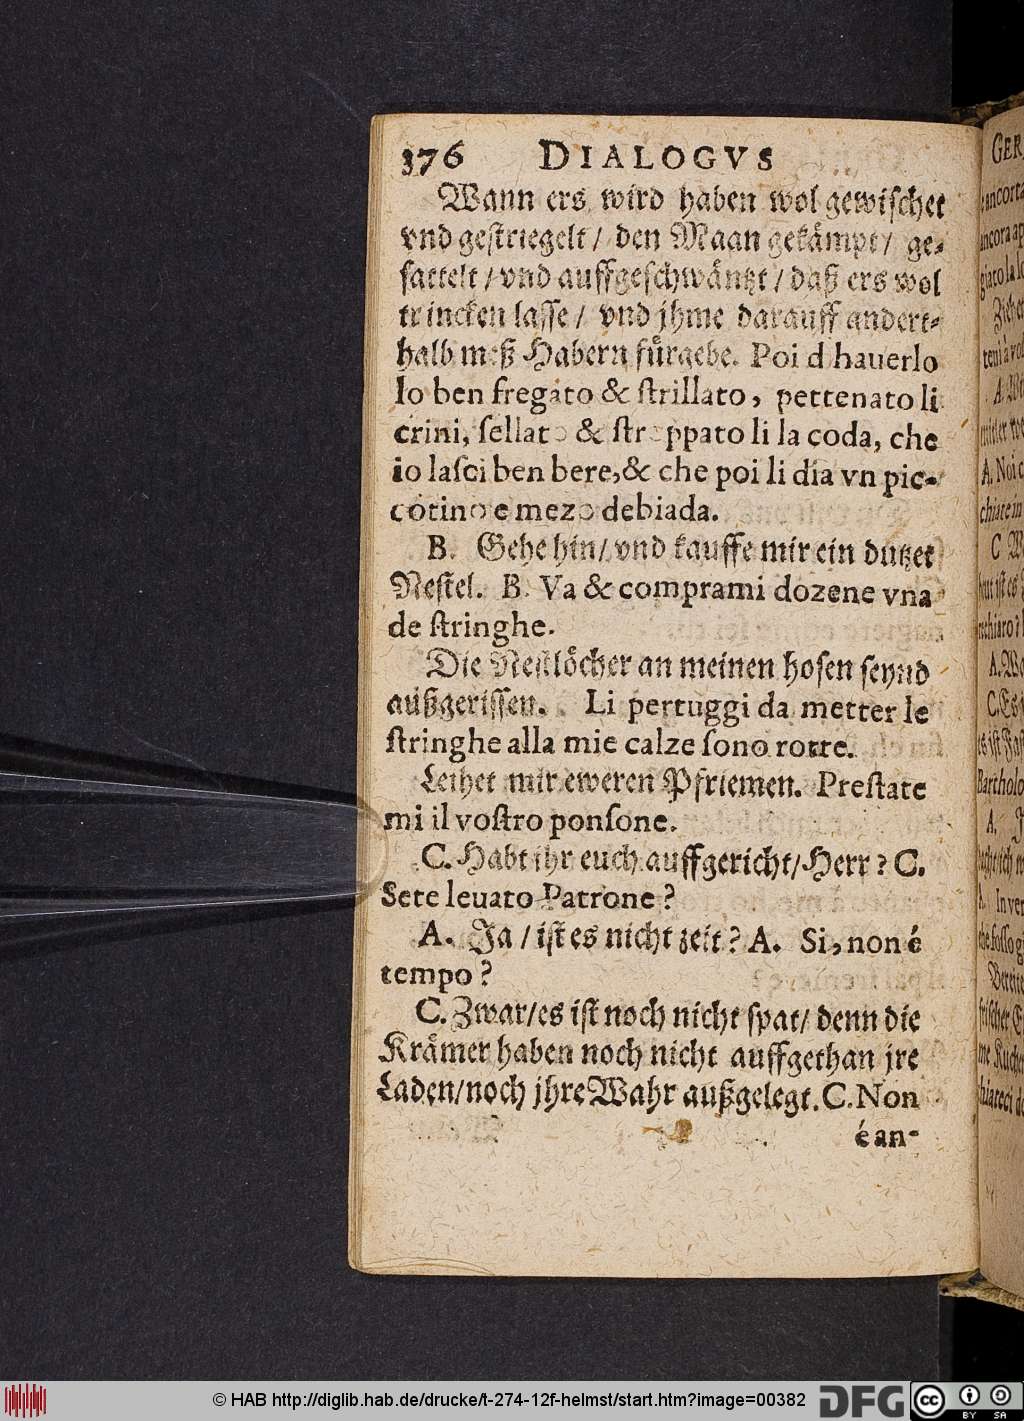 376 DIALOGVS
Wann ers wird haben wol gewischet
vnd gestriegelt / den Maan gekämpt / ge-
sattelt / vnd auffgeschwäntzt / daß ers wol
trincken lasse / vnd jhme darauff andert-
halb meß Habern fürgebe. Poi d hauerlo
lo ben fregato & ſtrillato, pettenato li
crini, ſellato & ſtroppato li la coda, che
io laſci ben bere, & che poi li dia vn pic-
cotino e mezo debiada.
B. Gehe hin / vnd kauffe mir ein dutzet
Nestel. B. Va & comprami dozene vna
de ſtringhe.
Die Nestlöcher an meinen hosen seynd
außgerissen. Li pertuggi da metter le
ſtringhe alla mie calze ſono rotte.
Leihet mir eweren Pfriemen. Preſtate
mi il voſtro ponſone.
C. Habt ihr euch auffgericht / Herr ? C.
Sete leuato Patrone ?
A. Ja / ist es nicht zeit ? A. Si, non é
tempo ?
C. Zwar / es ist noch nicht spat / denn die
Krämer haben noch nicht auffgethan jre
Laden / noch jhre Wahr außgelegt. C. Non
é an-
GER
© HAB http://diglib.hab.de/drucke/t-274-12f-helmst/start.htm?image=00382
DFG
cc
BY SA